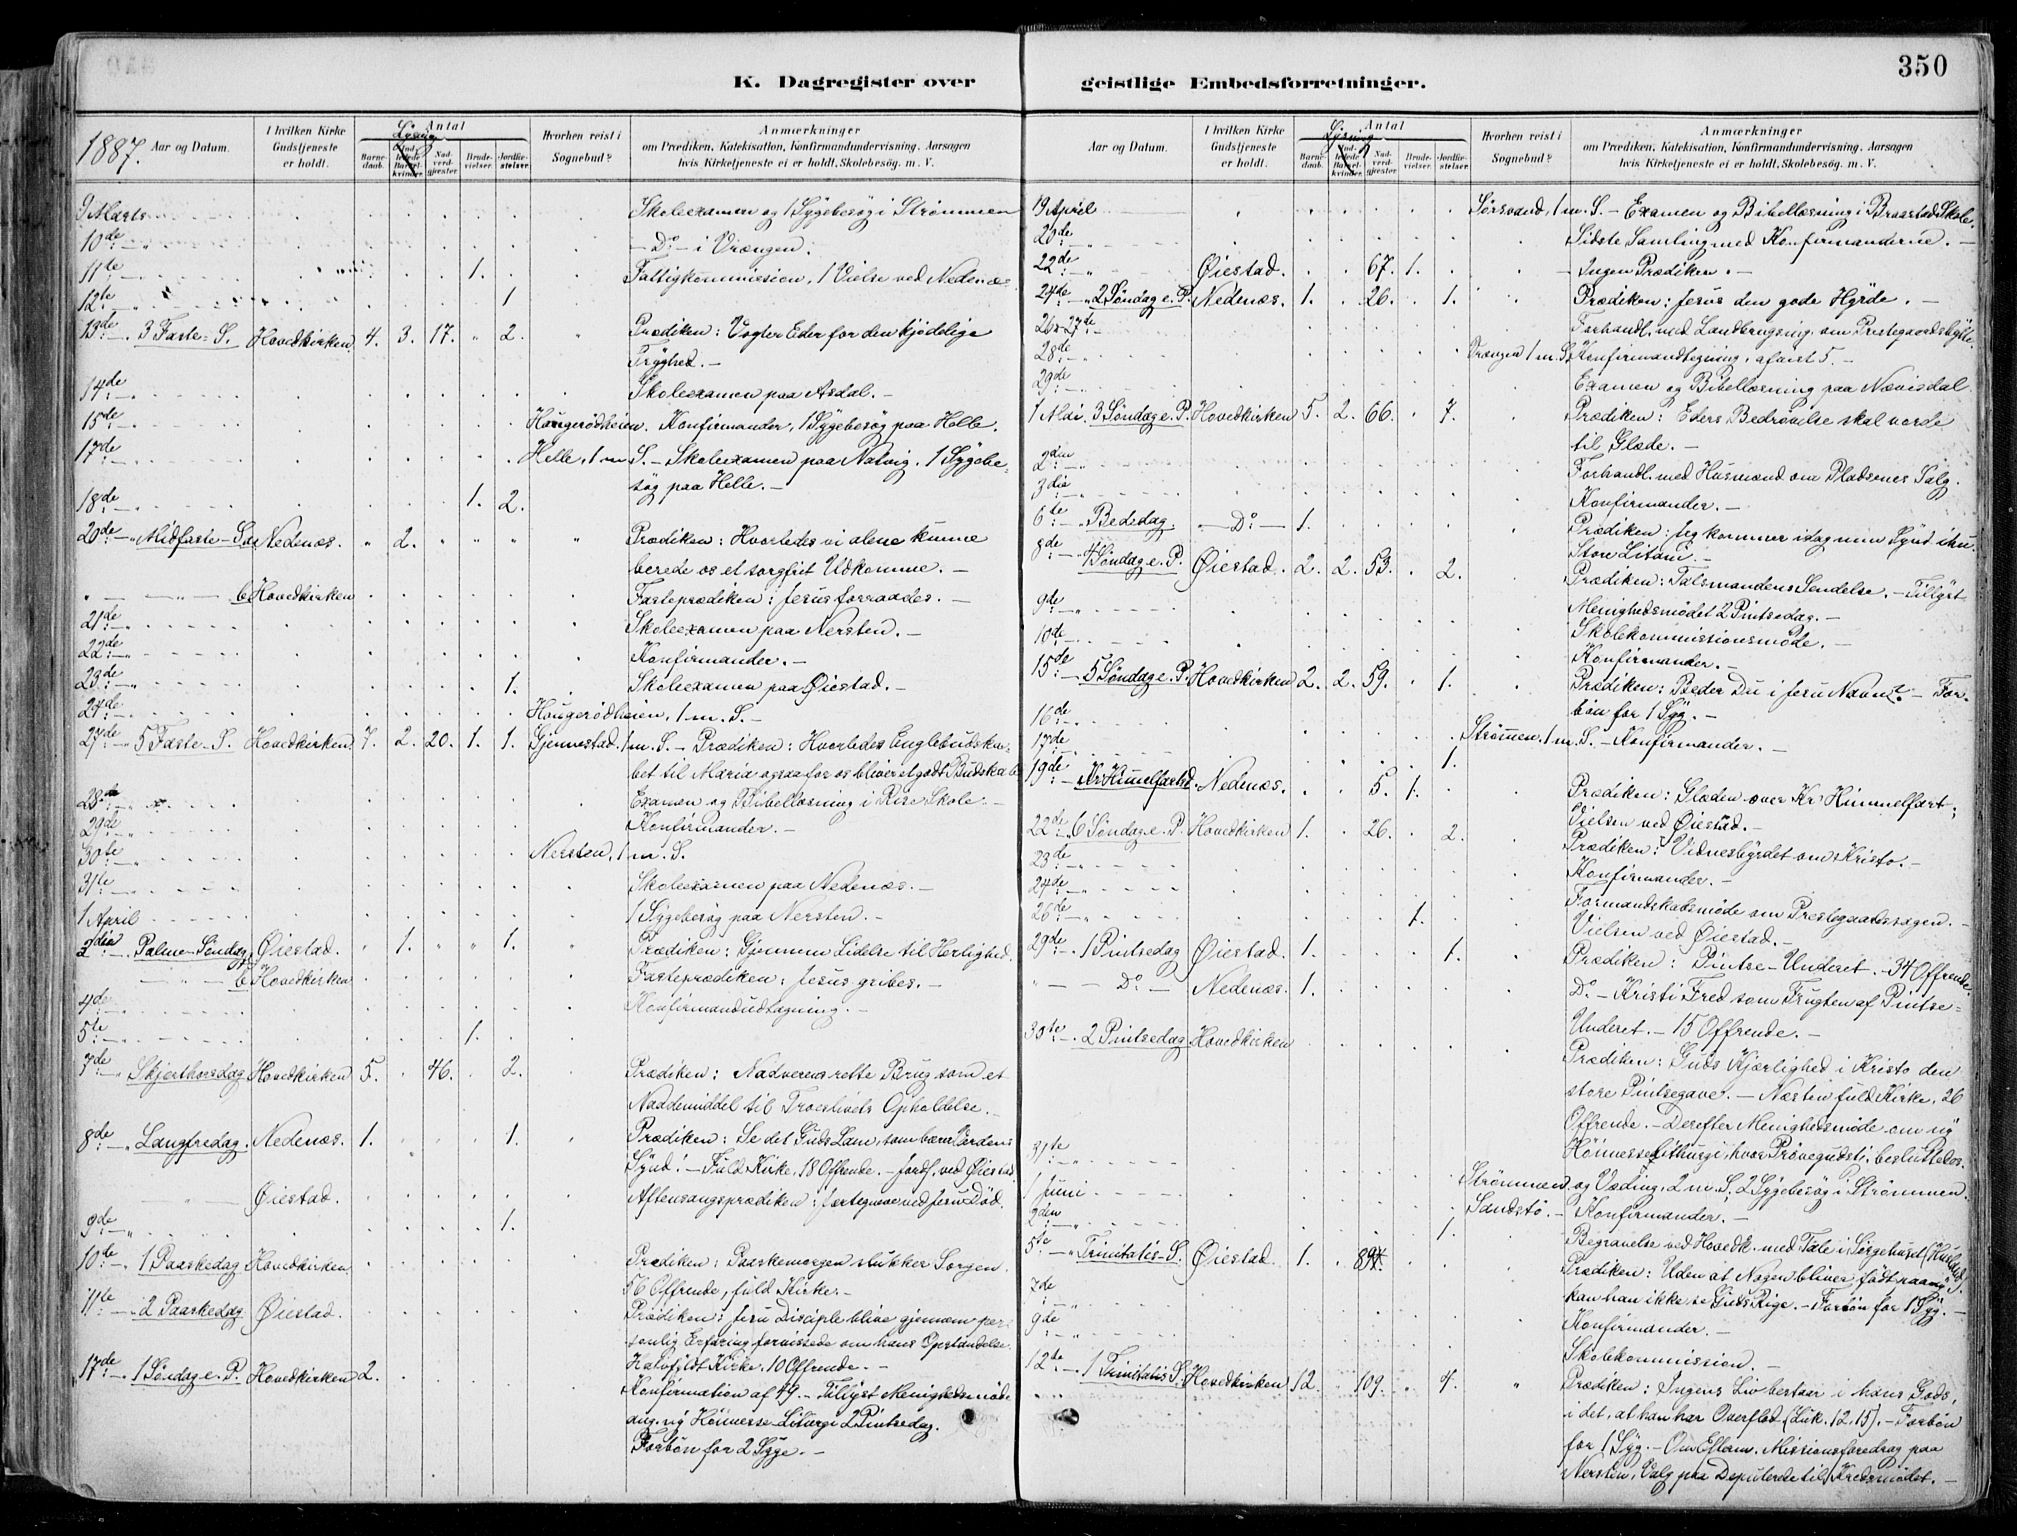 350
K. Dagregister over geistlige Embedsforretninger.
1887.
Aar og Datum. I hvilken Kirke Gudstjeneste er holdt. Antal Barnedaab. Indledede Barselkvinder. Nadverdgjæster. Brudevielser. Jordfæstelser. Hvorhen reist i Sognebud? Anmærkninger om Prædiken, Katekisation, Konfirmandundervisning. Aarsagen hvis Kirketjeneste ei er holdt. Skolebesøg. m. V.
9 Marts Skoleexamen og 1 Sygebesøg i Strømmen
10de - Do - i Vrængen.
11te 1. Fattigkommission, 1 Vielse ved Nedenæs
12te 1
13de 3 Faste-S. Hovedkirken 4. 3. 17. " 2. Prædiken: Vogter Eder for den kjødelige
Tryghed. -
14de Skoleexamen paa Asdal. -
15de Haugerødheien. Konfirmander, 1 Sygebesøg paa Helle.
17de Helle, 1 m S. - Skoleexamen paa Natvig. 1 Sygebe-
søg paa Helle. -
18de 1. 2.
20de Midfaste-S. Nedenæs. " 2. " " " Prædiken: Hvorledes vi alene kunne
berede os et sorgfrit Udkomme. -
Hovedkirken Fasteprædiken: Jesus forraades. -
21de Skoleexamen paa Nersten. -
22de Konfirmander. -
23de 1. Skoleexamen paa Øiestad. -
24de Haugerødheien, 1 m. S. -
27de 5 Faste-S. Hovedkirken 7. 2. 20. 1. 1. Gjennestad, 1 m. S. - Prædiken: Hvorledes Englebudska-
bet til Maria ogsaa for os bliver et godt Budskab
28de Examen og Bibellæsning i Rise Skole. -
29de Konfirmander. -
30te Nersten, 1 m. S.
31te Skoleexamen paa Nedenæs. -
1 April 1 Sygebesøg paa Nersten. -
3die Palme-Søndag Øiestad. " 1. " " 1. Prædiken: Gjennem Lidelse til Herlighed.
Hovedkirken Fasteprædiken: Jesus gribes. -
4de Konfirmandudtagning. -
5te 1.
7de Skjærthorsdag Hovedkirken 5. 46. 2. Prædiken: Nadverens rette Brug som et
Naademiddel til Troeslivets Opholdelse. -
8de Langfredag. Nedenæs. 1. 1. Prædiken: Se det Guds Lam, som bærer Verdens
Synd! - Fuld Kirke, 18 Offrende. - Jordf. ved Øiestad
Øiestad. Aftensangsprædiken: Jærtegnene ved Jesu Død.
9de 1.
10de 1 Paaskedag Hovedkirken Prædiken: Paaskemorgen slukker Sorgen.
56 Offrende, fuld Kirke. -
11te 2 Paaskedag Øiestad. Prædiken: Jesu Disciple blive gjennem per-
sonlig Erfaring forvissede om hans Opstandelse.
Halvfyldt Kirke. 10 Offrende. -
17de 1 Søndag e. P. Hovedkirken 2. Konfirmation af 49. - Tillyst Menighedsmøde
ang. ny Høimesse-Liturgi 2 Pintsedag.
Forbøn for 2 Syge. -
Aar og Datum. I hvilken Kirke Gudstjeneste er holdt. Antal Barnedaab. Indledede Barselkvinder. Nadverdgjæster. Brudevielser. Jordfæstelser. Hvorhen reist i Sognebud? Anmærkninger om Prædiken, Katekisation, Konfirmandundervisning. Aarsagen hvis Kirketjeneste ei er holdt. Skolebesøg. m. V.
19 April Sørsvand, 1 m. S. - Examen og Bibellæsning i Braastad Skole.
20de Sidste Samling med Konfirmanderne. -
22de Øiestad. 67. 1. Ingen Prædiken. -
24de 2 Søndag e. P. Nedenæs. 1. 26. 1. Prædiken: Jesus den gode Hyrde. -
26-27de Forhandl. med Landbrugsing. om Prestegaardsbytte.
28de Vrængen 1 m. S. Konfirmandtegning, afvist 5. -
29de Examen og Bibellæsning paa Nævisdal
1 Mai 3 Søndag e. P. Hovedkirken 5. 2. 66. 7. Prædiken: Eders Bedrøvelse skal vorde
til Glæde. -
2den Forhandl. med Husmænd om Pladsenes Salg.
3die Konfirmander. -
6te Bededag. - Do - 1. Prædiken: Jeg kommer idag min Synd ihu.
Store Litani -
8de 4 Søndag e. P. Øiestad. 2. 2. 53. 2. Prædiken: Talsmandens Sendelse. - Tillyst
Menighedsmødet 2 Pintsedag. -
9de Skolekommissionsmøde. -
10de Konfirmander. -
15de 5 Søndag e. P. Hovedkirken 2. 2. 59. 1. Prædiken: Beder Du i Jesu Navn? - For-
bøn for 1 Syg. -
16de
17de Strømmen, 1 m. S. - Konfirmander. -
1.
19de Kr. Himmelfartsd. Nedenæs. 5. 1. Prædiken: Glæden over Kr. Himmelfart;
Vielsen ved Øiestad. -
22de 6 Søndag e. P. Hovedkirken 1. 26. 2. Prædiken: Vidnesbyrdet om Kristo. -
23de Konfirmander. -
24de Formandskabsmøde om Prestegaardssagen. -
26de 1. Vielsen ved Øiestad. -
29de 1 Pintsedag Øiestad. 1. 1. Prædiken: Pintse-Underet. - 34 Offrende.
- Do - Nedenæs. 1. Do - Kristi Fred som Frugten af Pintse-
Underet. - 15 Offrende. -
30te 2 Pintsedag Hovedkirken Prædiken: Guds Kjærlighed i Kristo den
store Pintsegave. - Næsten fuld Kirke, 26
Offrende. - Derefter Menighedsmøde om ny
Høimesselithurgi, hvor Prøvegudstj. besluttedes.
31te
1 Juni Strømmen og Væding, 2 m. S. 2 Sygebesøg i Strømmen.
2den Sandstø. - Konfirmander. -
1. Begravelse ved Hovedk. med Tale i Sørgehuset
5te Trinitatis-S. Øiestad. 1. 84. Prædiken: Uden at Nogen bliver født paany
kan han ikke se Guds Rige. - Forbøn for 1 Syg. -
7de Konfirmander. -
9de Skolekommission. -
12te 1 Trinitatis S. Hovedkirken 12. 109. " 4. " Prædiken: Ingens Liv bestaar i hans Gods,
i det, at han har Overflod (Luk. 12, 15). - Forbøn
for 1 Syg. - Om Efterm. Missionsforedrag paa
Nersten, Valg paa Deputerede til Kredsmødet. -